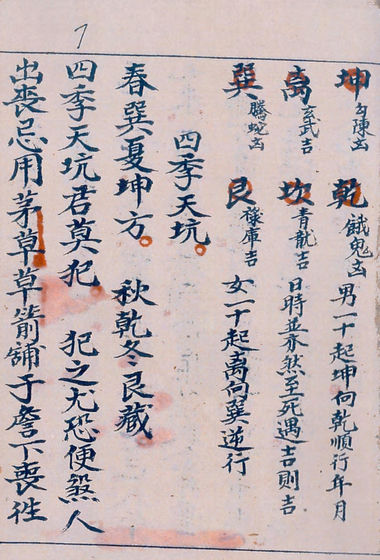 坤勾陳凶 乾餓鬼凶 男一十起坤向乾順行年月
离玄武吉 坎青龍吉 日時並亦然至死遇吉則吉
巽騰蛇凶 艮祿庫吉 女一十起离向巽逆行
四季天坑
春巽夏坤方 秋乾冬艮藏
四季天坑君莫犯 犯之尤恐使煞人
出喪忌用茅草草箭舖于詹下喪徃
7